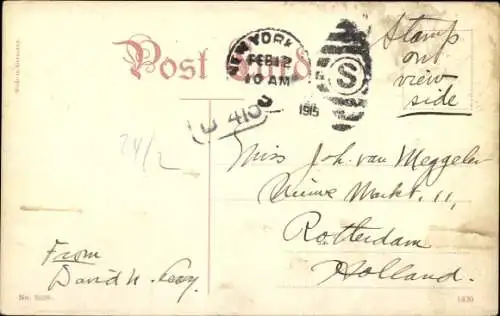 Post Card
NEW YORK,
FEB 12
10 AM
1915
S
Stamp
on
view
side
Made in Germany.
410
24/2
Miss Joh. van Meggelen
Nieuwe Markt. 11,
Rotterdam
Holland.
From
David N.
No.